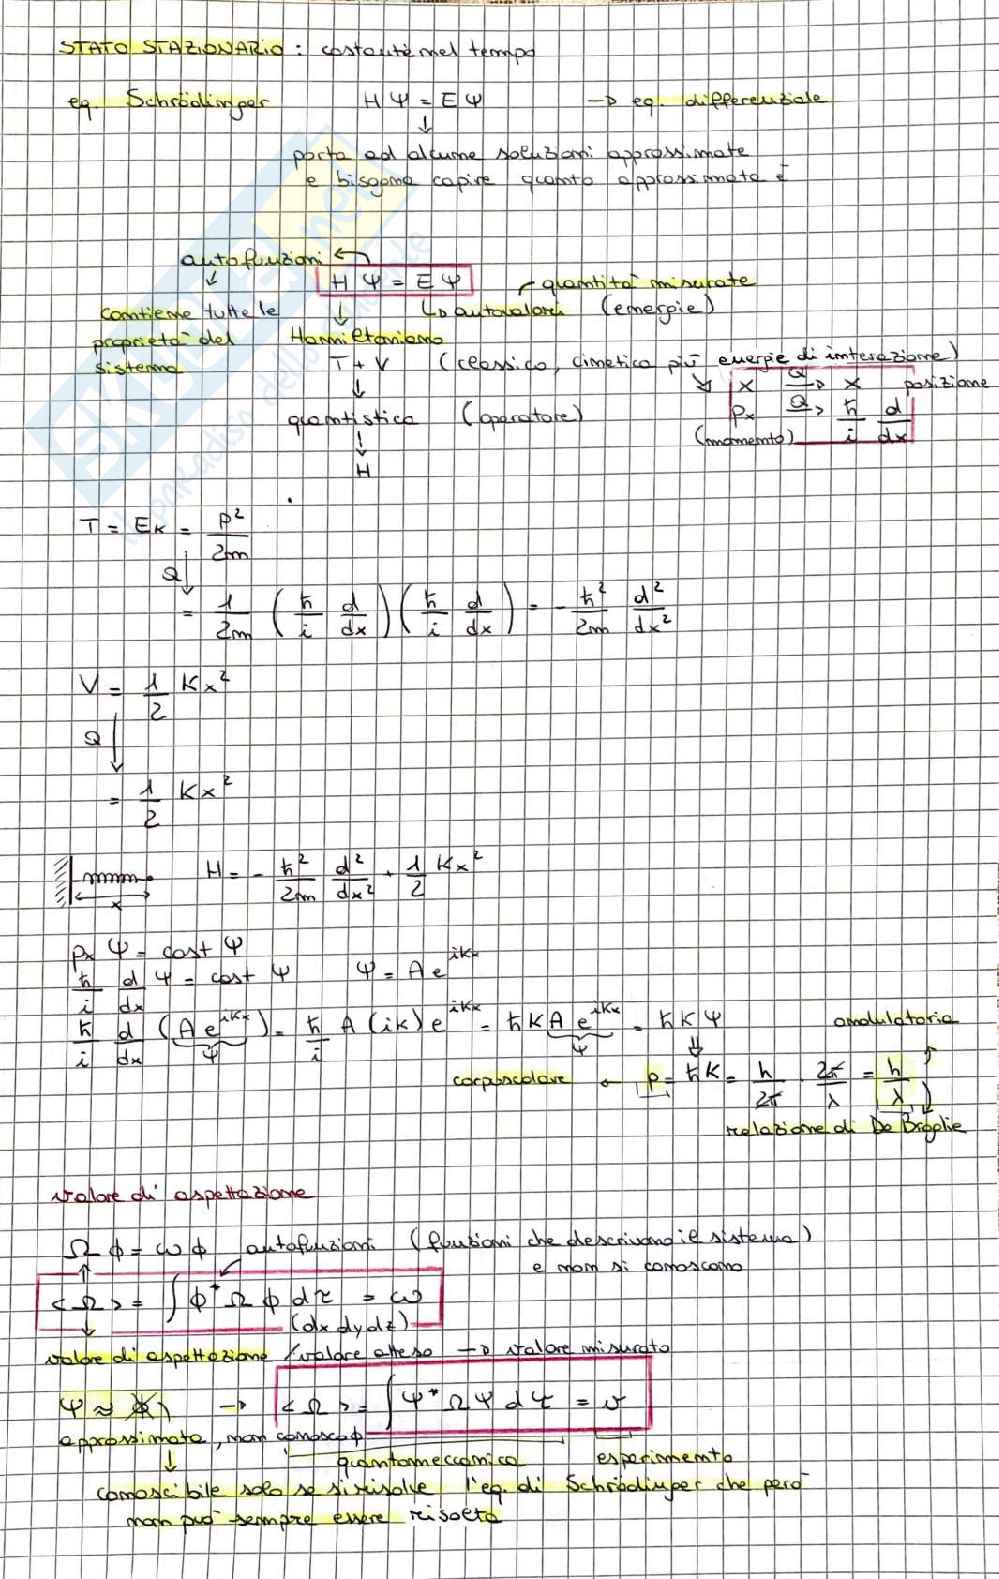 STATO STAZIONARIO : costante nel tempo
eq. Schrödinger HΨ = EΨ → eq. differenziale
↓
porta ad alcune soluzioni approssimate
e bisogna capire quanto approssimate è
autofunzioni ←
↓ HΨ = EΨ quantità misurate
contiene tutte le ↓ ↳ autovalori (energie)
proprietà del Hamiltoniano
sistema T + V (classico, cinetica più energie di interazione)
↓ ↘ x Q→ x posizione
quantistica (operatore) px Q→ ħ/i d/dx
↓ (momento)
H
T = Ek = p²/2m
Q ↓
= 1/2m (ħ/i d/dx) (ħ/i d/dx) = - ħ²/2m d²/dx²
V = 1/2 Kx²
Q ↓
= 1/2 Kx²
x H = - ħ²/2m d²/dx² + 1/2 Kx²
px Ψ = cost Ψ
ħ/i d/dx Ψ = cost Ψ Ψ = A e^ikx
ħ/i d/dx (A e^ikx) = ħ/i A (ik) e^ikx = ħk A e^ikx = ħkΨ ondulatoria
Ψ Ψ ↓
corpuscolare ← p = ħk = h/2π · 2π/λ = h/λ
relazione di De Broglie
valore di aspettazione
Ω ϕ = ω ϕ autofunzioni (funzioni che descrivono il sistema)
e non si conoscono
<Ω> = ∫ϕ* Ω ϕ dτ = ω
↓ (dx dy dz)
valore di aspettazione / valore atteso → valore misurato
Ψ ≈ → <Ω> = ∫Ψ* Ω Ψ dτ = v
approssimata, non conosco ϕ
↓ quantomeccanica esperimento
conoscibile solo se si risolve l'eq. di Schrödinger che però
non può sempre essere risolta